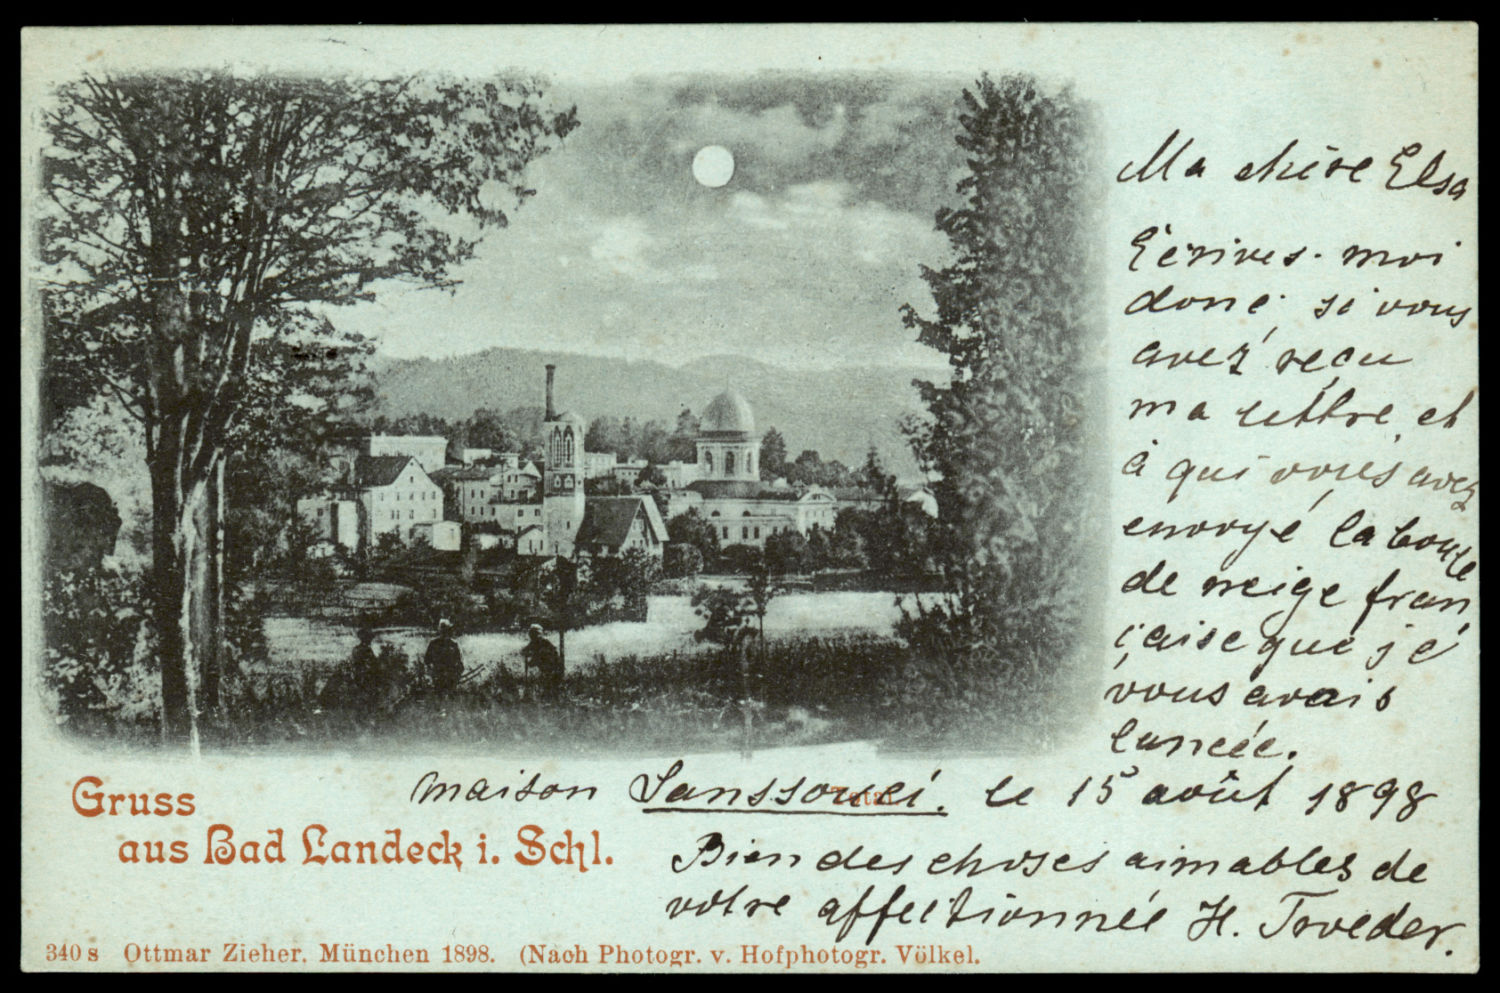 Ma chère Elsa
Écrives-moi
donc, si vous
avez reçu
ma lettre, et
à qui vous avez
envoyé la boule
de neige fran
çaise que je
vous avais
lancée.
maison Sanssouci. le 15 août 1898
Total
Gruss
aus Bad Landeck i. Schl.
Bien des choses aimables de
vôtre affectionnée H.
340 s Ottmar Zieher, München 1898. (Nach Photogr. v. Hofphotogr. Völkel.